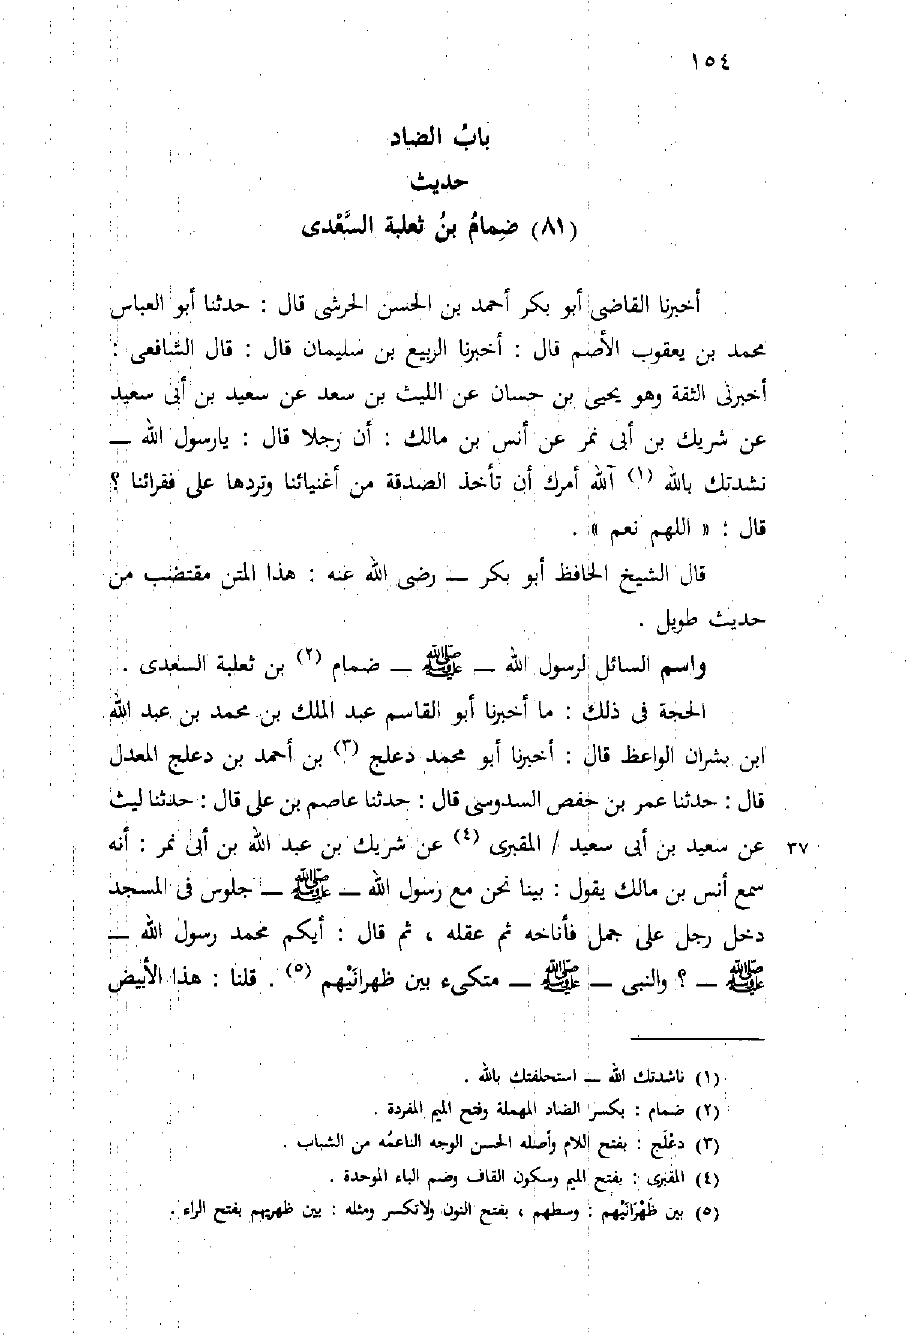 ١٥٤
بابُ الضاد
حديث
(٨١) ضِمامُ بنُ ثعلبة السَّعْدى
أخبرنا القاضى أبو بكر أحمد بن الحسن الحرشى قال : حدثنا أبو العباس
محمد بن يعقوب الأصم قال : أخبرنا الربيع بن سليمان قال : قال الشافعى :
أخبرنى الثقة وهو يحيى بن حسان عن الليث بن سعد عن سعيد بن أبى سعيد
عن شريك بن أبى نمر عن أنس بن مالك : أن رجلا قال : يارسول الله ــ
نشدتك بالله (١) آلله أمرك أن تأخذ الصدقة من أغنيائنا وتردها على فقرائنا ؟
قال : « اللهم نعم » .
قال الشيخ الحافظ أبو بكر ــ رضى الله عنه : هذا المتن مقتضب من
حديث طويل .
واسم السائل لرسول الله ــ ﷺ ــ ضمام (٢) بن ثعلبة السعدى .
الحجة فى ذلك : ما أخبرنا أبو القاسم عبد الملك بن محمد بن عبد الله
ابن بشران الواعظ قال : أخبرنا أبو محمد دعلج (٣) بن أحمد بن دعلج المعدل
قال : حدثنا عمر بن حفص السدوسى قال : حدثنا عاصم بن على قال : حدثنا ليث
عن سعيد بن أبى سعيد / المقبرى (٤) عن شريك بن عبد الله بن أبى نمر : أنه
٣٧
سمع أنس بن مالك يقول : بينا نحن مع رسول الله ــ ﷺ ــ جلوس فى المسجد
دخل رجل على جمل فأناخه ثم عقله ، ثم قال : أيكم محمد رسول الله ــ
ﷺ ــ ؟ والنبى ــ ﷺ ــ متكىء بين ظهرانَيْهم (٥) . قلنا : هذا الأبيض
(١) ناشدتك الله ــ استحلفتك بالله .
(٢) ضمام : بكسر الضاد المهملة وفتح الميم المفردة .
(٣) دعْلَج : بفتح اللام وأصله الحسن الوجه الناعمُه من الشباب .
(٤) المقبرى : بفتح الميم وسكون القاف وضم الباء الموحدة .
(٥) بين ظَهْرَانَيْهم : وسطهم ، بفتح النون ولاتكسر ومثله : بين ظهريهم بفتح الراء .